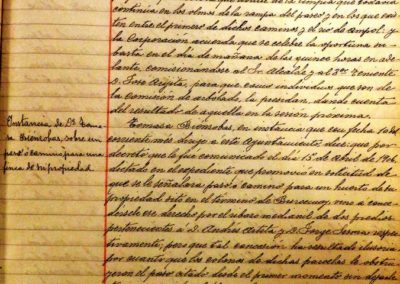 continúa en los olmos de la rampa del paseo y en los que exis
ten entre el primero de dichos caminos y el río de Ampol. Y
la Corporación acuerda que se celebre la oportuna su
basta en el día de mañana de las quince horas en ade
lante, comisionándose al Sr. Alcalde y al 3er Teniente
D. José Argila, para que como individuos que son de
la Comisión de arbolado, la presidan, dando cuenta
del resultado de aquella en la sesión próxima.
Instancia de Dª Toma
sa Escósobas, sobre un
paso ó camino para una
finca de su propiedad
Tomasa Escósobas, en instancia que con fecha
corriente mes dirige a este Ayuntamiento dice que por
decreto que le fue comunicado el día 15 de Abril de 1906,
dictado en el expediente que promovió en solicitud de
que se le señalara paso ó camino para un huerto de su
propiedad sito en el término de vino a con
cedersele ese derecho por el ribazo medianil de dos predios
pertenecientes á D. Andrés Artita y D. Jorge respec
tivamente, pero que tal concesión ha resultado ilusoria
por cuanto que los colonos de dichas parcelas le obstru
yeron el paso citado desde el primer momento sin dejarle